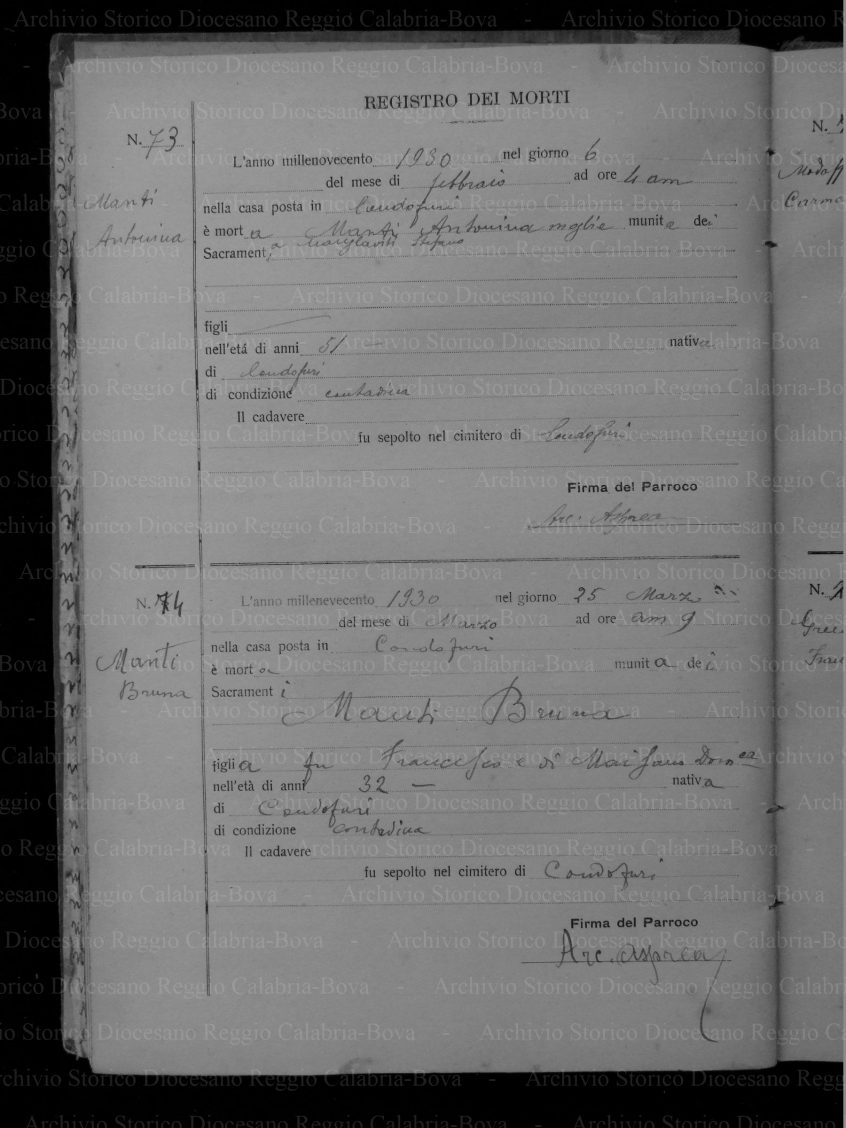 REGISTRO DEI MORTI
N. 73
Manti
Antonina
L'anno millenovecento 1930 nel giorno 6
del mese di febbraio ad ore 4 am
nella casa posta in Condofuri
è mort a Manti Antonina moglie munit a dei
Sacrament i a Stefano
figli
nell'etá di anni 51 nativa
di Condofuri
di condizione contadina
Il cadavere
fu sepolto nel cimitero di Condofuri
Firma del Parroco
Arc. Asprea
N. 74
Manti
Bruna
L'anno millenevecento 1930 nel giorno 25 Marzo
del mese di Marzo ad ore am 9
nella casa posta in Condofuri
è mort a munit a de i
Sacrament i
Manti Bruna
figli a fu Francesco e di Dom.ca
nell'età di anni 32 — nativ a
di Condofuri
di condizione contadina
Il cadavere
fu sepolto nel cimitero di Condofuri
Firma del Parroco
Arc. Asprea
N.
Modaff
Carme
N.
Fran
Archivio Storico Diocesano Reggio Calabria-Bova